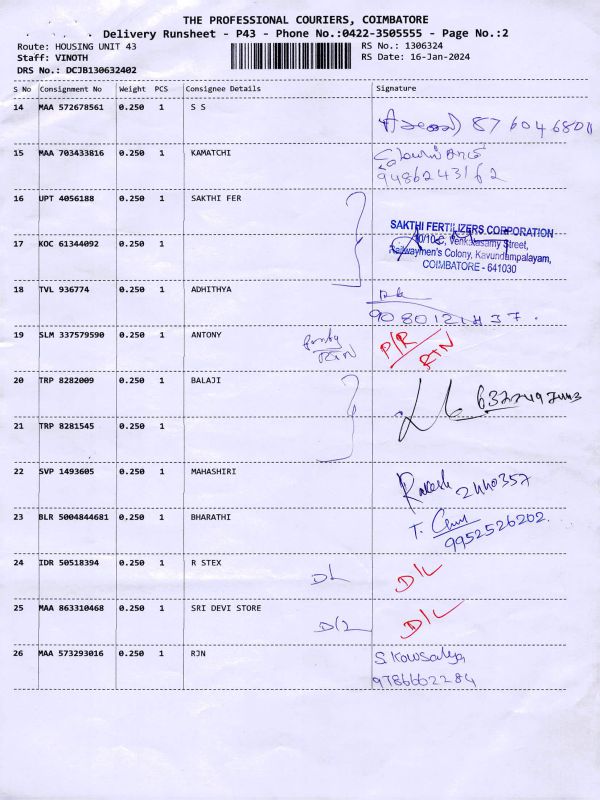 THE PROFESSIONAL COURIERS, COIMBATORE
Delivery Runsheet - P43 - Phone No.:0422-3505555 - Page No.:2
Route: HOUSING UNIT 43
RS No.: 1306324
Staff: VINOTH
RS Date: 16-Jan-2024
DRS No.: DCJB130632402
S No Consignment No Weight PCS Consignee Details Signature
14 MAA 572678561 0.250 1 S S
876046800
15 MAA 703433816 0.250 1 KAMATCHI
9486243162
16 UPT 4056188 0.250 1 SAKTHI FER
SAKTHI FERTILIZERS CORPORATION
10/10-C, Venkatasamy Street,
17 KOC 61344092 0.250 1
Railwaymen's Colony, Kavundampalayam,
COIMBATORE - 641030
18 TVL 936774 0.250 1 ADHITHYA
19 SLM 337579590 0.250 1 ANTONY
RTN P/R
RTN
20 TRP 8282009 0.250 1 BALAJI
21 TRP 8281545 0.250 1
22 SVP 1493605 0.250 1 MAHASHIRI
Rakesh 2440357
23 BLR 5004844681 0.250 1 BHARATHI
9952526202.
24 IDR 50518394 0.250 1 R STEX
DL D/L
25 MAA 863310468 0.250 1 SRI DEVI STORE
D/L D/L
26 MAA 573293016 0.250 1 RJN
S. Kowsalya
9786662284